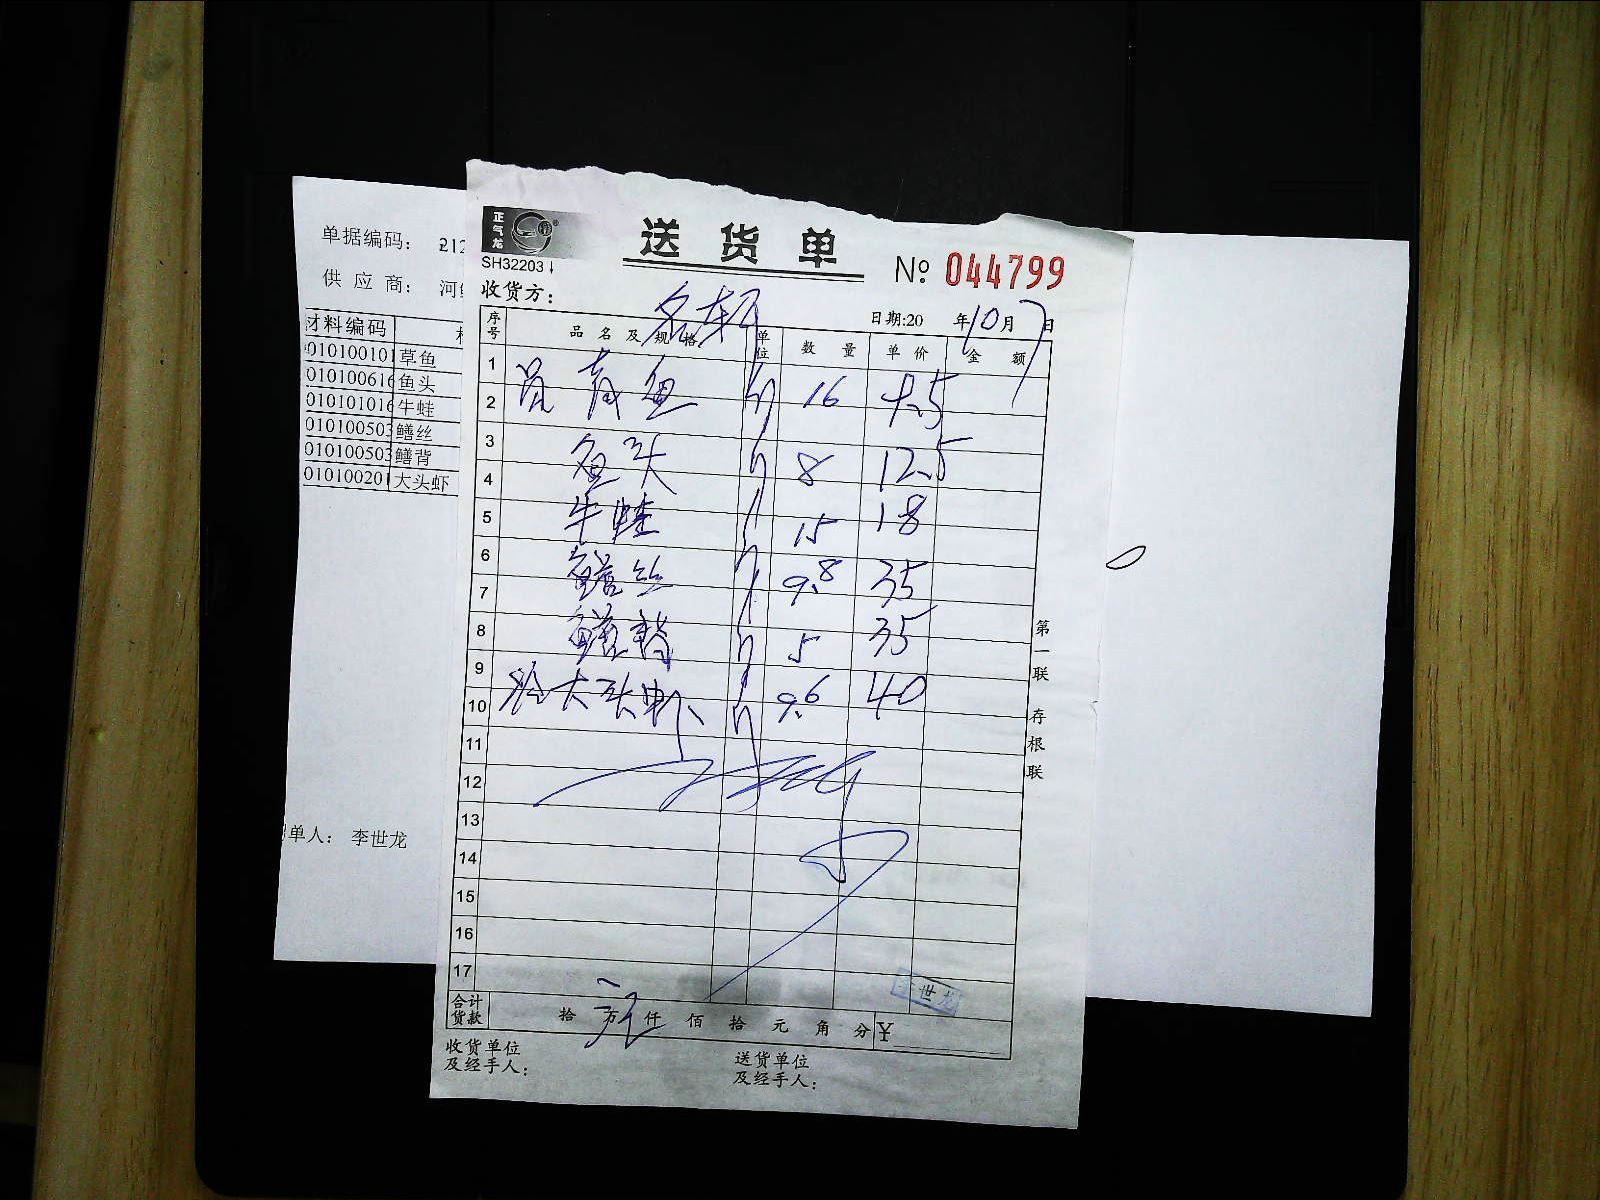 正气龙
送货单
SH32203
№ 044799
收货方: 名轩
日期:20 年10月7日
序号 品名及规格 单位 数量 单价 金额
1
2 鱼 斤 16 9.5
3
4 鱼头 斤 8 12.5
5 牛蛙 斤 15 18
6
7 鳝丝 斤 9.8 35
8 鳝背 斤 5 35
9
10 大头虾 斤 9.6 40
11
12
13
14
15
16
17
李世龙
合计货款 拾 万 仟 佰 拾 元 角 分 ¥
收货单位及经手人:
送货单位及经手人:
第一联 存根联
单据编码: 212
供应商: 河
材料编码
010100101 草鱼
010100616 鱼头
010101016 牛蛙
010100503 鳝丝
010100503 鳝背
010100201 大头虾
单人: 李世龙